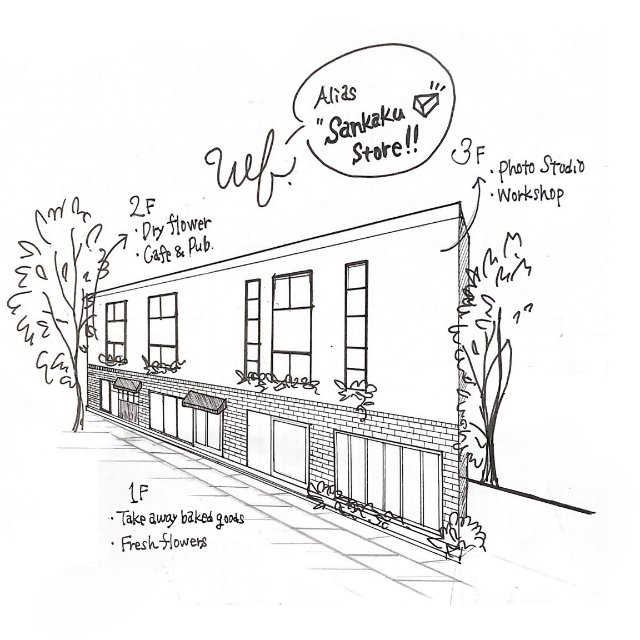 Alias
"Sankaku
Store!!
3F
· Photo Studio
· Workshop
2F
· Dry flower
· Cafe & Pub.
1F
· Take away baked goods
· Fresh flowers